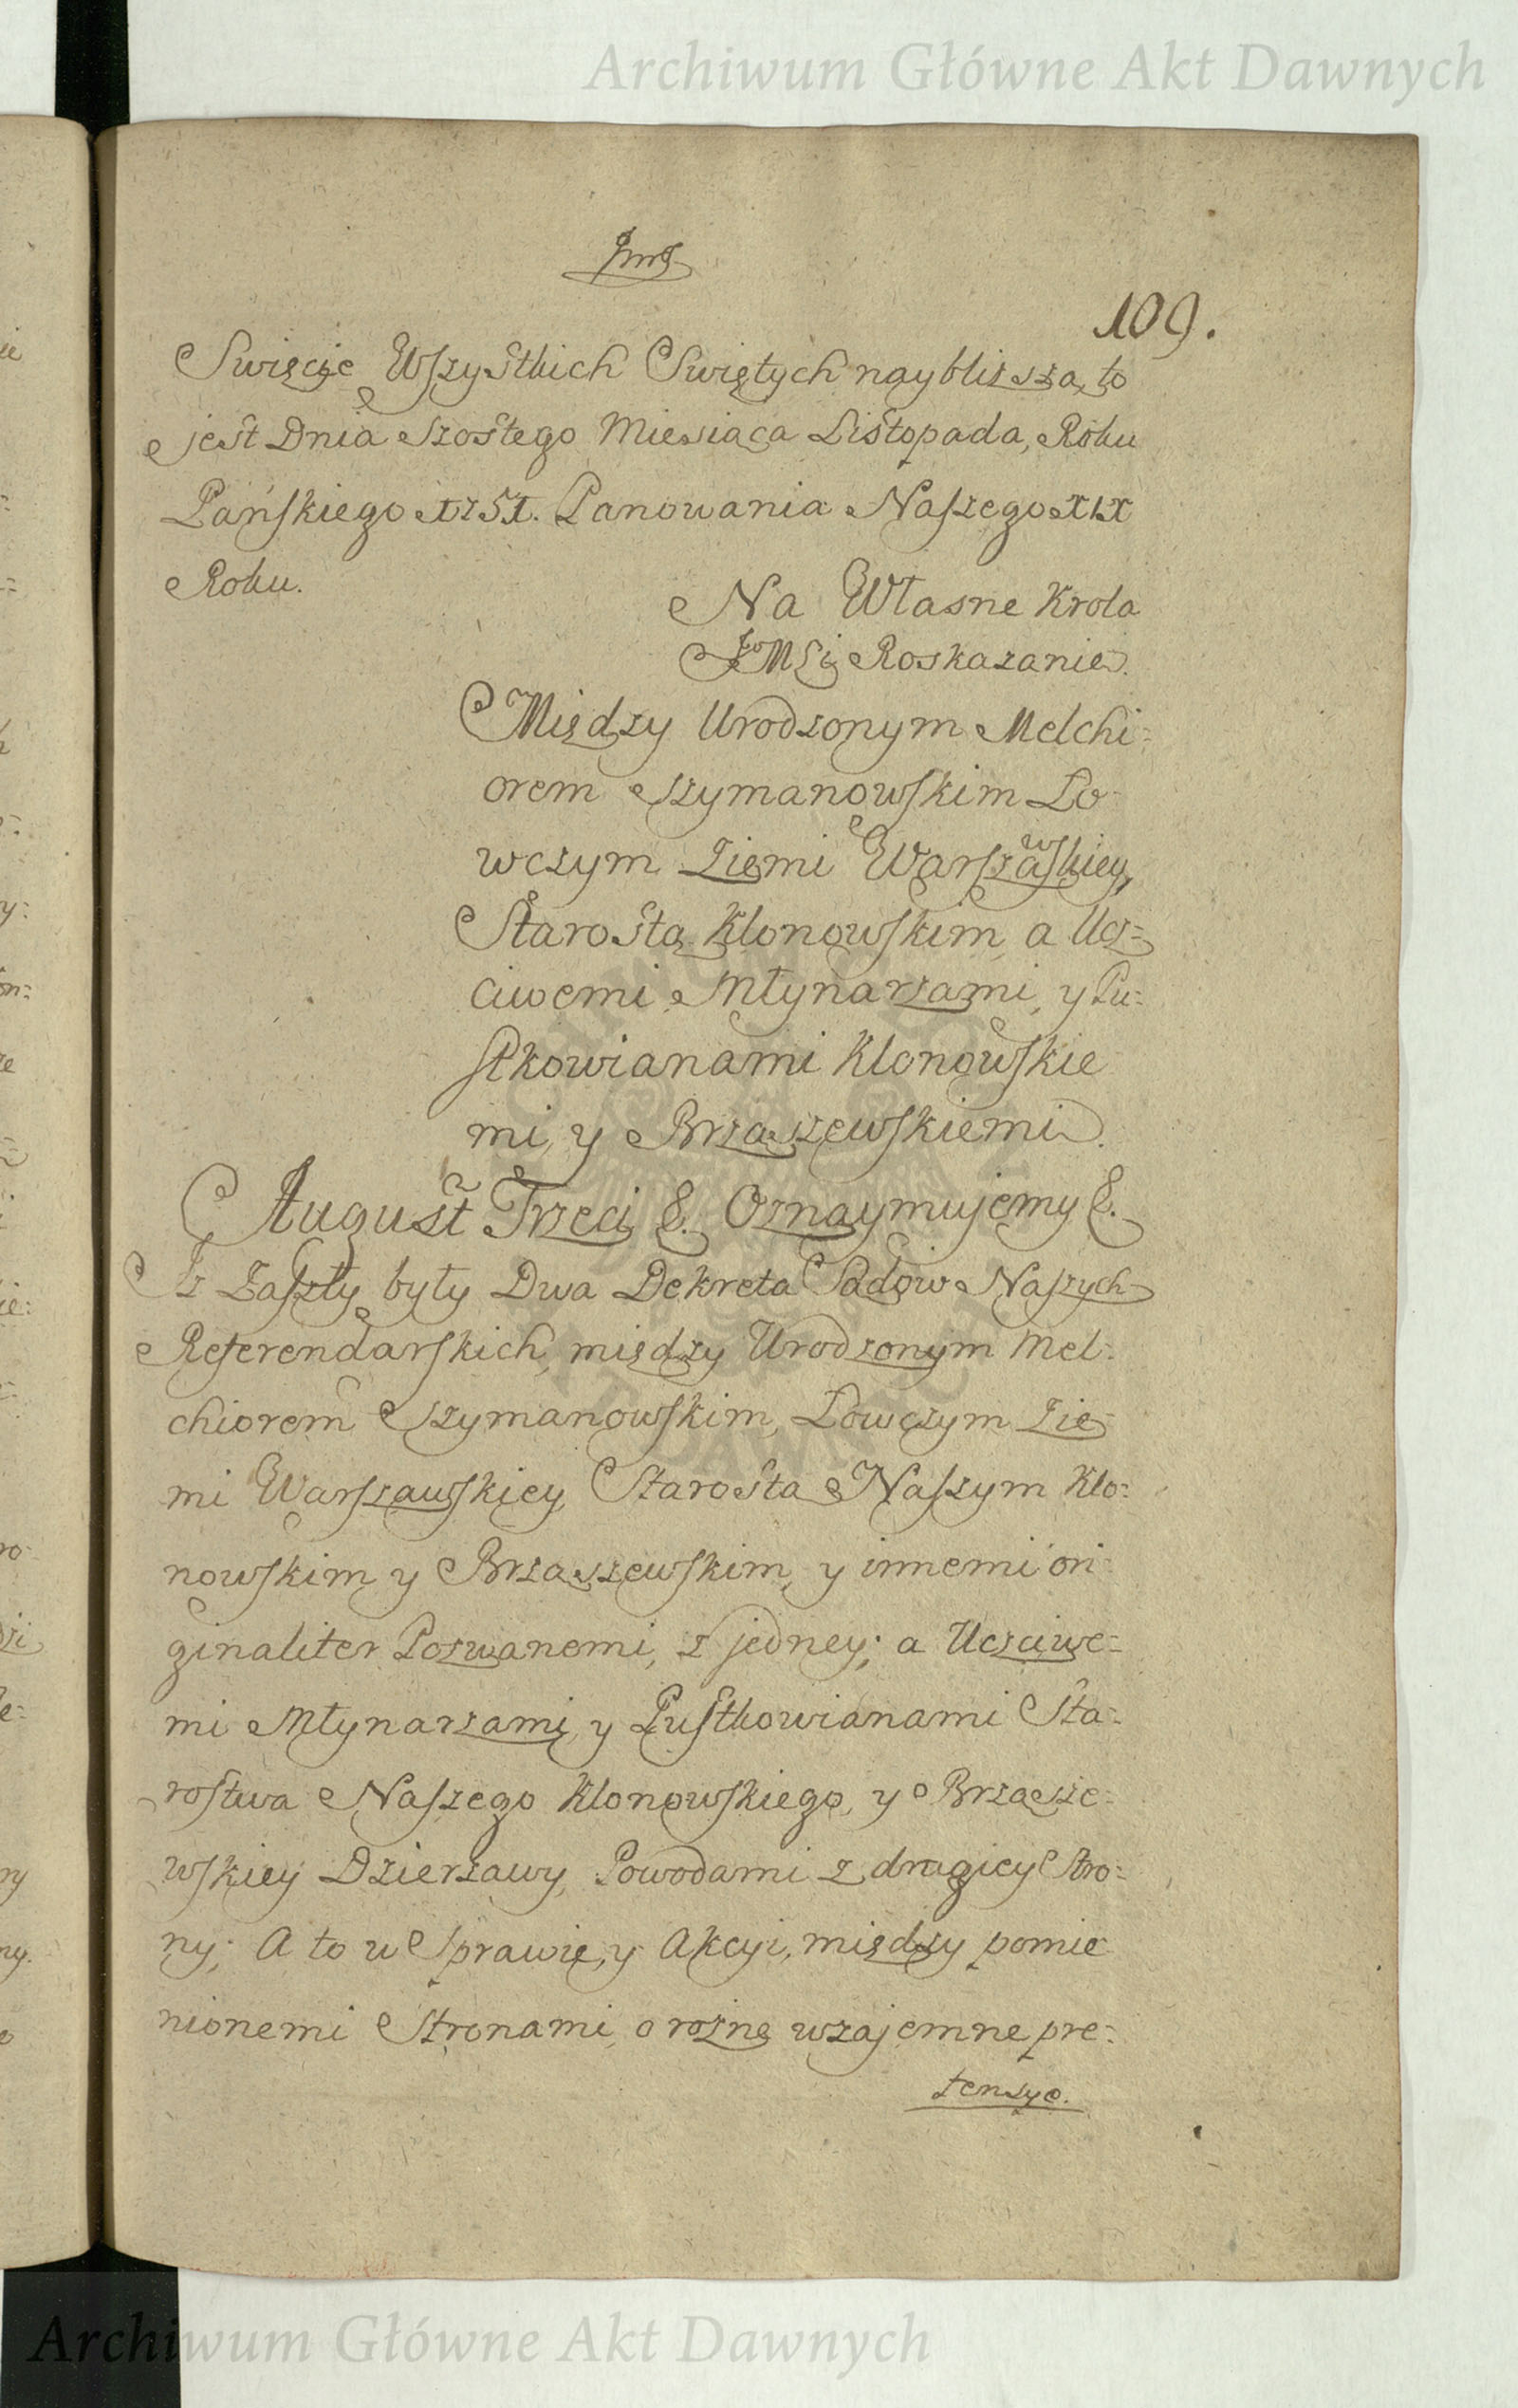 Archiwum Główne Akt Dawnych
109.
Swięcie Wszystkich Swiętych naybliższa, to
jest Dnia Szostego Miesiąca Listopada, Roku
Pańskiego 1751. Panowania Naszego XIX
Roku.
Na Własne Krola
JoMSci Roskazanie.
Między Urodzonym Melchi:
orem Szymanowskim Ło
wczym Ziemi Warszawskiey,
Starostą Klonowskim, a Ucz:
ciwemi Młynarzami, y Pu:
stkowianami Klonowskie
mi, y Brząszewskiemi.
August Trzeci &. Oznaymujemy &.
Iż Zaszły były Dwa Dekreta Sądow Naszych
Referendarskich, między Urodzonym Mel:
chiorem Szymanowskim, Łowczym Zie
mi Warszawskiey Starostą Naszym Klo:
nowskim y Brząszewskim, y innemi ori
ginaliter Pozwanemi, z jedney; a Uczciwe:
mi Młynarzami, y Pustkowianami Sta:
rostwa Naszego Klonowskiego, y Brząsze:
wskiey Dzierżawy, Powodami z drugiey Stro:
ny; A to w Sprawie, y Akcyi, między pomie
nionemi Stronami, o rożne wzajemne pre:
tensye.
Archiwum Główne Akt Dawnych